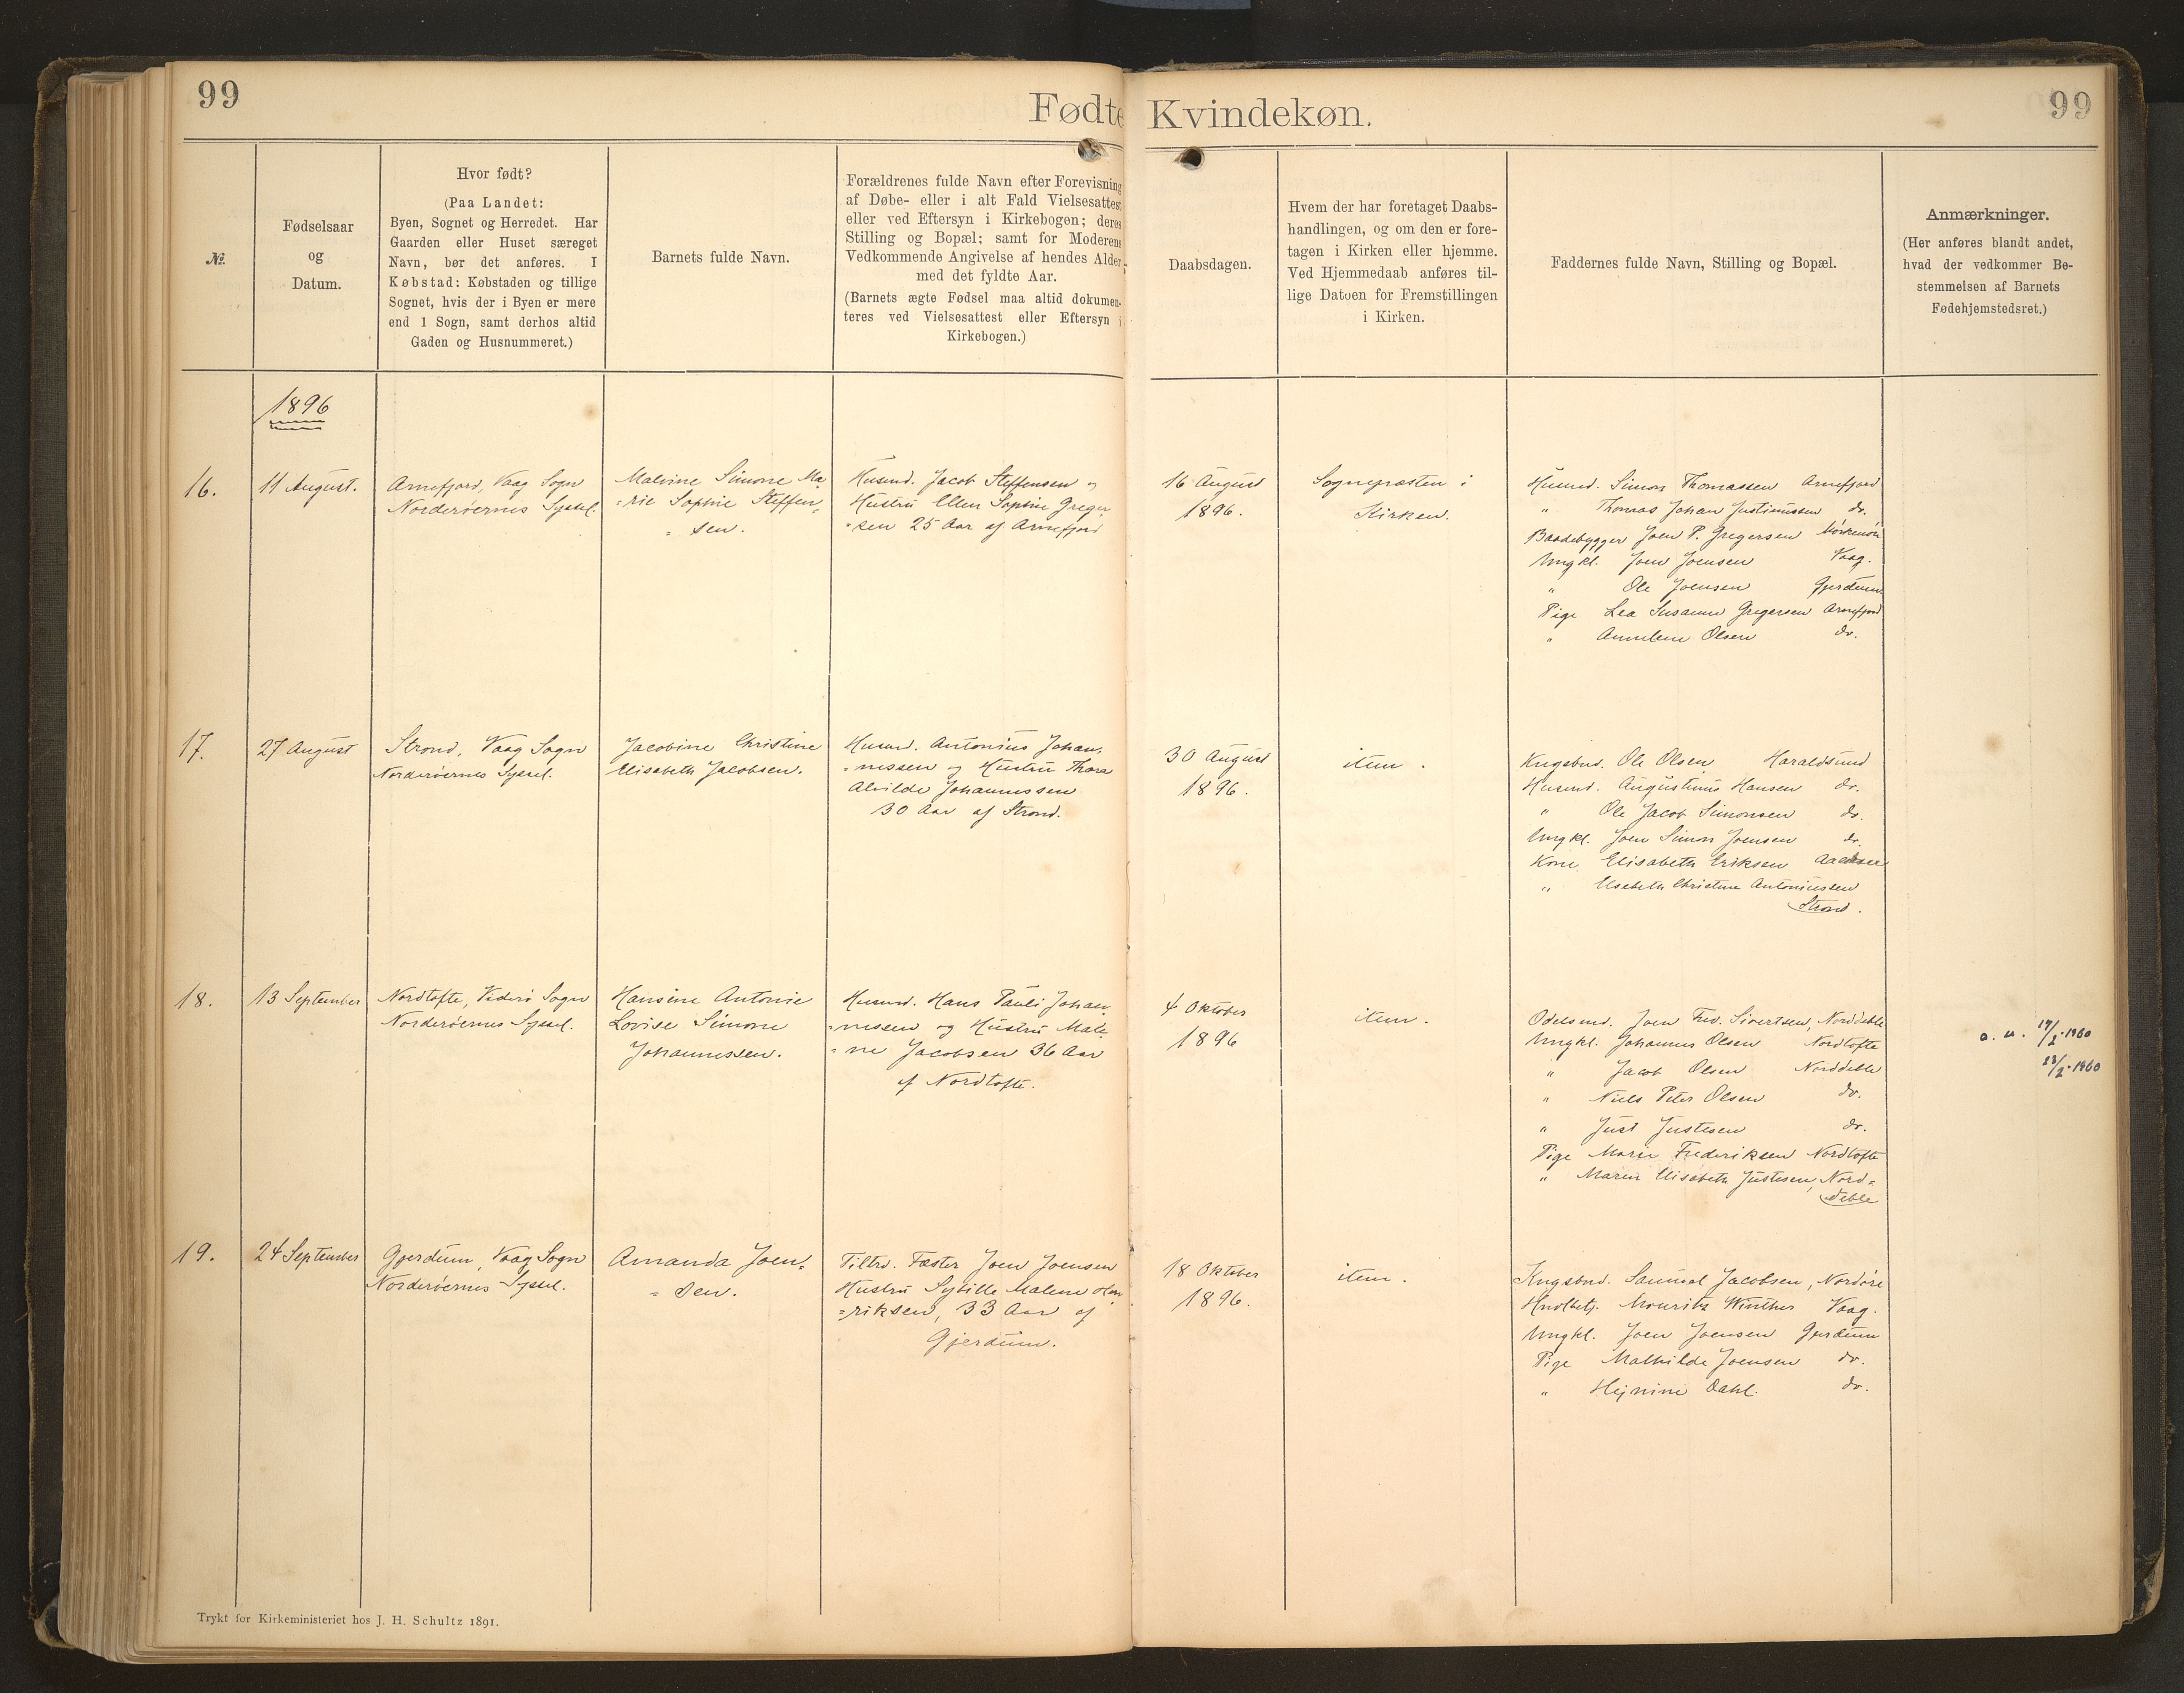 99
Fødte Kvindekøn.
99
№.
Fødselsaar
og
Datum.
Hvor født?
(Paa Landet:
Byen, Sognet og Herredet. Har
Gaarden eller Huset særeget
Navn, bør det anføres. I
Købstad: Købstaden og tillige
Sognet, hvis der i Byen er mere
end 1 Sogn, samt derhos altid
Gaden og Husnummeret.)
Barnets fulde Navn.
Forældrenes fulde Navn efter Forevisning
af Døbe- eller i alt Fald Vielsesattest
eller ved Eftersyn i Kirkebogen; deres
Stilling og Bopæl; samt for Moderens
Vedkommende Angivelse af hendes Alder
med det fyldte Aar.
(Barnets ægte Fødsel maa altid dokumen-
teres ved Vielsesattest eller Eftersyn i
Kirkebogen.)
Daabsdagen.
Hvem der har foretaget Daabs-
handlingen, og om den er fore-
tagen i Kirken eller hjemme.
Ved Hjemmedaab anføres til-
lige Datoen for Fremstillingen
i Kirken.
Faddernes fulde Navn, Stilling og Bopæl.
Anmærkninger.
(Her anføres blandt andet,
hvad der vedkommer Be-
stemmelsen af Barnets
Fødehjemstedsret.)
1896
16.
11 August.
Arnefjord, Vaag Sogn
Norderøernes Syssel.
Malvine Simone Ma
=rie Sophie Steffen=
=sen.
Husmd. Jacob Steffensen og
Hustru Ellen Sophie Greger
=sen 25 Aar af Arnefjord
16 August
1896.
Sognepræsten i
Kirken.
Husmd. Simon Thomassen Arnefjord
" Thomas Johan Justinussen do.
Baadebygger Joen P. Gregersen
Ungkl. Joen Joensen Vaag.
" Ole Joensen Gjerdum
Pige Lea Susanne Gregersen Arnefjord
" Annelene Olsen do.
17.
27 August
Strond, Vaag Sogn
Norderøernes Syssel.
Jacobine Christine
Elisabeth Jacobsen.
Husmd. Antonius Johan=
=nessen og Hustru Thora
Alvilde Johannessen
30 Aar af Strond.
30 August
1896.
item.
Kngsbnd. Ole Olsen Haraldsund
Husmd. Augustinus Hansen do.
" Ole Jacob Simonsen do.
Ungkl. Joen Simon Joensen do.
Kone Elisabeth Eriksen
" Elsebeth Christine Antoniussen
Strond.
18.
13 September
Nordtofte, Viderø Sogn
Norderøernes Syssel.
Hansine Antonie
Lovise Simone
Johannessen.
Husmd. Hans Pauli Johan
=nessen og Hustru Male
=ne Jacobsen 36 Aar
af Nordtofte.
4 Oktober
1896
item.
Odelsmd. Joen Fred. Sivertsen, Norddeble
Ungkl. Johannes Olsen Nordtofte
" Jacob Olsen Norddeble
" Niels Peter Olsen do.
" Just Justesen do.
Pige Marie Frederiksen Nordtofte
" Maren Elisabeth Justesen, Nord=
deble
a. u. 17/2-1960
23/2-1960
19.
24 September
Gjerdum, Vaag Sogn
Norderøernes Syssel.
Amanda Joen=
=sen.
Tiltrd. Fæster Joen Joensen
Hustru Sybille Malene Hen
=riksen, 33 Aar af
Gjerdum.
18 Oktober
1896.
item.
Kngsbnd. Samuel Jacobsen, Nordøre
Hndlbetj. Mouritz Winther Vaag.
Ungkl. Joen Joensen Gjerdum
Pige Mathilde Joensen do.
" Hejnine Dahl. do.
Trykt for Kirkeministeriet hos J. H. Schultz 1891.